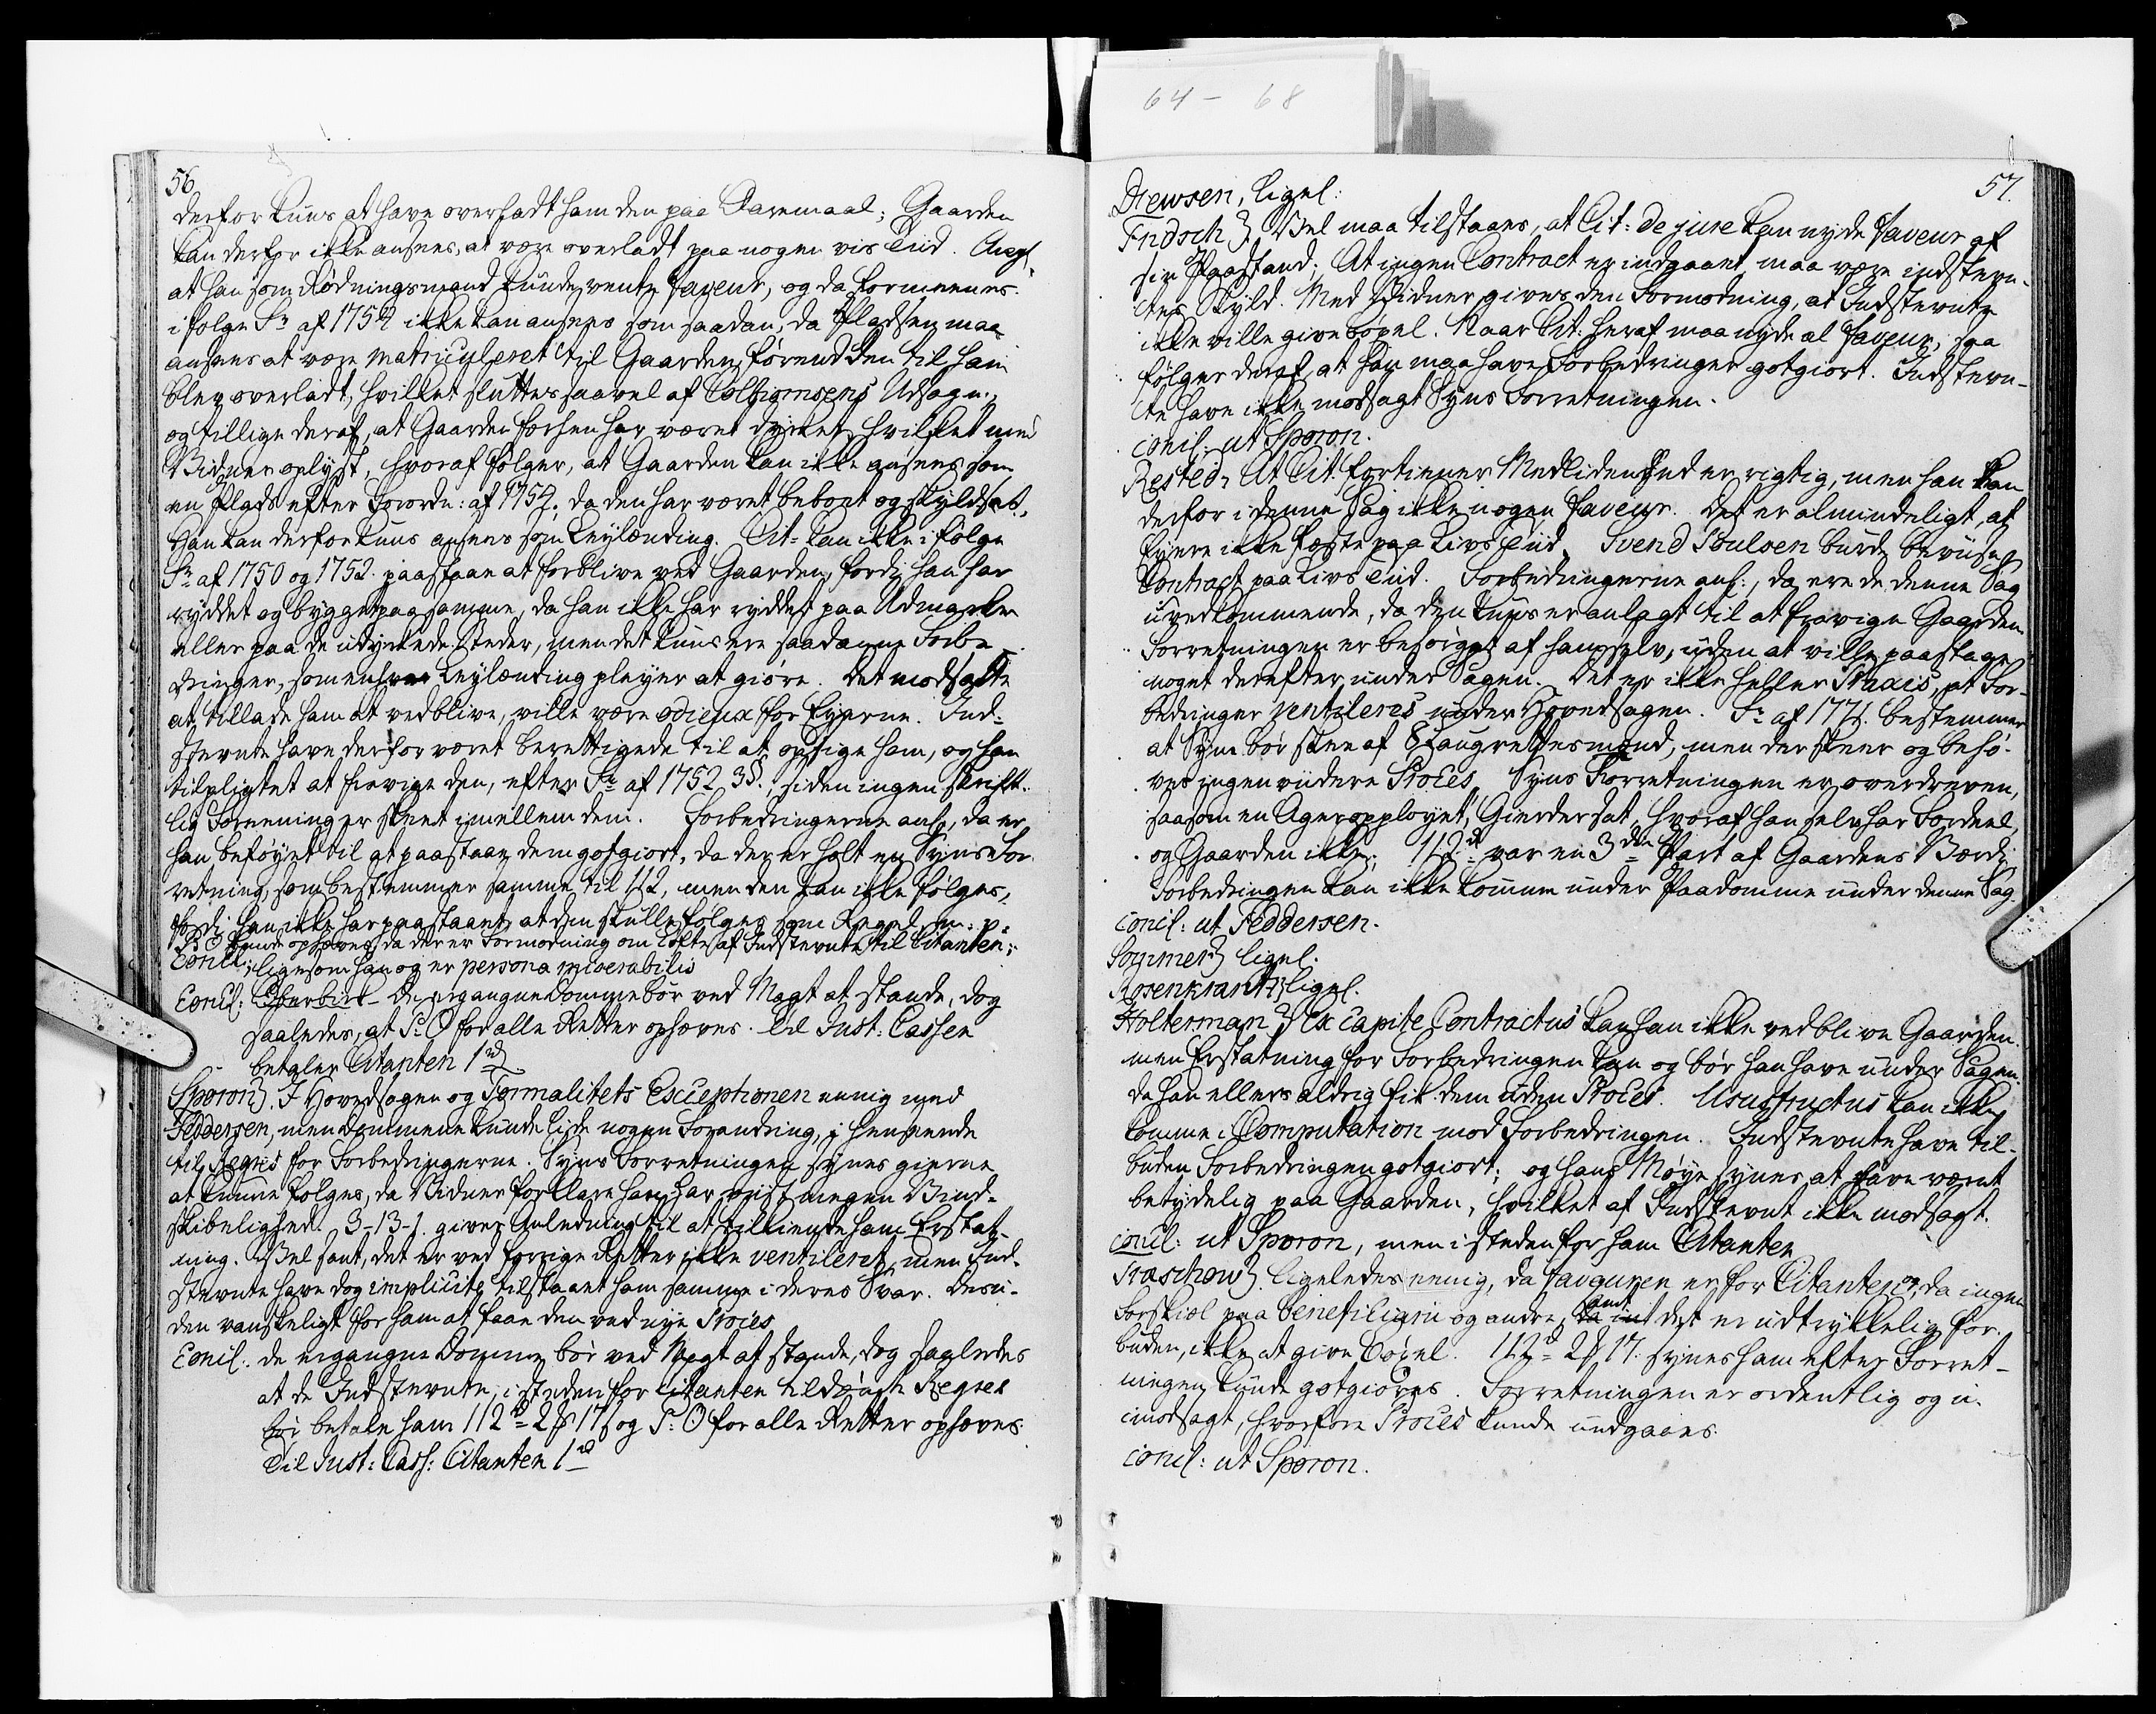 64 - 68
56
derfor kuns at have overladt ham den paa Aaremaal; Gaarden
kan derfor ikke ansees, at være overladt paa nogen vis Tiid. Ang:
at han som Rødningsmand kunde vente faveur, og da formeenes
i følge Fr: af 1754 ikke kan ansees som saadan, da Pladsen maa
ansees at være matriculeret til Gaarden, førend den til ham
blev overladt, hvilket sluttes saavel af Udsagn,
og tillige deraf, at Gaarden forhen har været dyrket, hvilket med
Vidner oplyst, hvoraf følger, at Gaarden kan ikke ansees som
en Plads efter Forordn: af 1754, da den har været beboet og skyldsat,
Han kan derfor kuns ansees som Leylænding. Cit: kan ikke i følge
Fr: af 1750 og 1752 paastaae at forblive ved Gaarden, fordi han har
ryddet og bygget paa samme, da han ikke har ryddet paa Udmarker
eller paa de udyrkede Steder, men det kuns ere saadanne Forbe-
dringer, som enhver Leylænding pleyer at giøre. Det modsatte
at tillade ham at vedblive, ville være odieux for Eyerne. Ind-
stevnte have derfor været berettigede til at opsige ham, og han
tilpligtet at fravige den, efter Fr: af 1752 3§, siden ingen skrift-
lig Foreening er skeet imellem dem. Forbedringerne ang:, da er
han beføyet til at paastaae dem gotgiort, da der er holt en Syns For-
retning, som bestemmer samme til 112, men den kan ikke følges,
fordi han ikke har paastaaet, at den skulle følges som Regel m: p:
P: O kunde ophæves, da der er Formodning om Løfte af Indstevnte til Citanten;
ligesom han og er persona miserabilis
Concl: De ergangne Domme bør ved Magt at stande, dog
saaledes, at P: O for alle Retter ophæves. Til Just: Cassen
betaler Citanten 1 rd
Sporon). I Hovedsagen og Formalitets Exceptionen eenig med
Feddersen, men Dommene kunde lide nogen Forandring, i henseende
til Regres for Forbedringerne. Syns Forretningen synes gierne
at kunne følges, da Vidner forklare han har viist megen Vind-
skibelighed. 3-13-1. giver Anledning til at tilkiende ham Erstat-
ning. Vel sant, det er ved forrige Retter ikke ventileret, men Ind-
stevnte have dog implicite tilstaaet ham samme i deres Svar. Desu-
den vanskeligt for ham at faae den ved nye Proces
Concl: de ergangne Domme bør ved Magt at stande, dog saaledes
at de Indstevnte, i steden for Citanten Regres
bør betale ham 112 rd 2 ß 17 og P: O for alle Retter ophæves.
Til Just: Cass: Citanten 1 rd
57.
Drewsen, ligel:
Fridsch). Vel maa tilstaaes, at Cit: de jure kan nyde faveur af
sin Paastand; At ingen Contract er indgaaet, maa være indstevn-
tes Skyld. Med Vidner gives den Formodning, at Indstevnte
ikke ville give Bøxel. Naar Cit: heraf maa nyde al faveur, saa
følger deraf, at han maa have Forbedringer gotgiort. Indstevn-
te have ikke modsagt Syns Forretningen.
concl: ut Sporon.
Rested. At Cit: fortiener Medlidenhed er rigtig, men han kan
derfor i denne Sag ikke nogen faveur. Det er almindeligt, at
Eyere ikke fæste paa Livs Tiid. Svend Poulsen burde beviise
Contract paa Livs Tiid. Forbedringerne anl:, da ere de denne Sag
uvedkommende, da den kuns er anlagt til at fravige Gaarden
Forretningen er besørget af ham selv, uden at ville paastaae
noget derefter under Sagen. Det er ikke heller Praxis, at For-
bedringer ventileres under Hovedsagen. Fr: af 1771. bestemmer
at Syn bør skee af 8 Laugrettesmænd, men der skeer og behø-
ves ingen viidere Proces. Syns Forretningen er overdreven,
saasom en Ager opployet, Gierder sat, hvoraf han selv har Fordeel,
og Gaarden ikke; 112 rd var en 3die Part af Gaardens Værdi;
Forbedringen kan ikke komme under Paadomme under denne Sag.
concl: ut Feddersen.
Sommer) ligel.
Rosenkrantz) ligel:
Holterman) Ex capite Contractus kan han ikke vedblive Gaarden.
men Erstatning for Forbedringen kan og bør han have under Sagen.
da han ellers aldrig fik dem uden Proces. Ususfructus kan ikke
komme i Computation mod Forbedringen. Indstevnte have til-
buden Forbedringen gotgiort; og hans Møye synes at have været
betydelig paa Gaarden, hvilket af Indstevnt ikke modsagt.
concl: ut Sporon, men i steden for ham Citanten
Praschow) ligeledes eenig, da faveuren er for Citanten og da ingen
Forskiæl paa beneficiarii og andre, samt det er udtrykkelig for-
buden, ikke at give Bøxel. 112 rd 2 ß 17. synes ham efter Forret-
ningen kunde gotgiøres. Forretningen er ordentlig og u-
imodsagt, hvorfore Proces kunde undgaaes.
concl: ut Sporon.